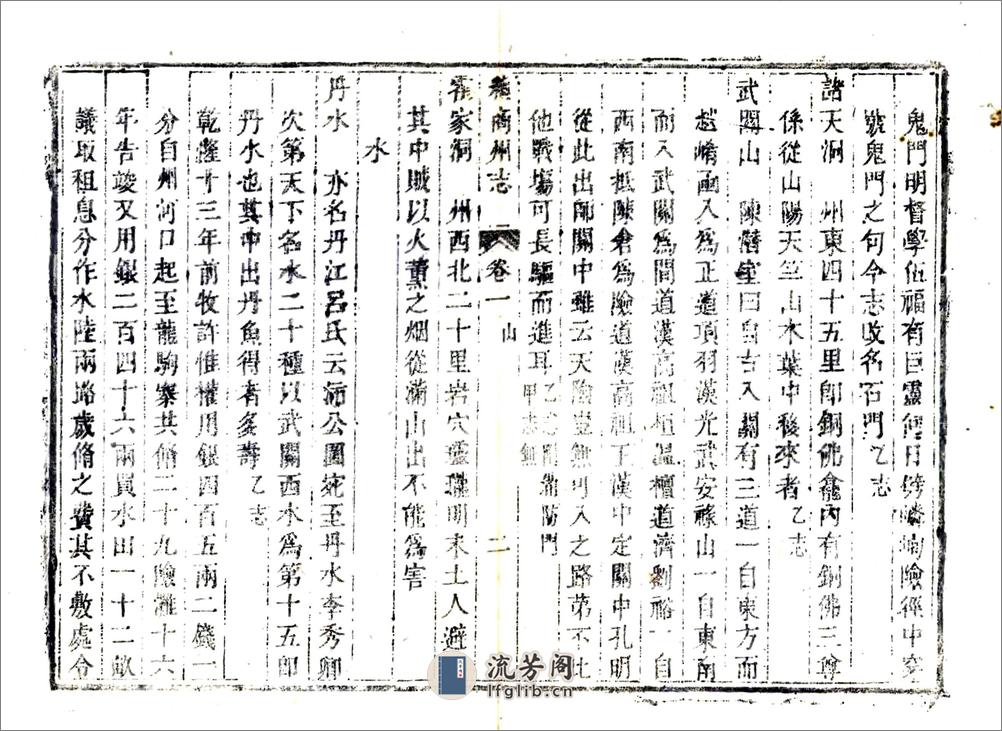 鬼門明督學伍福有巨靈何日傍嶙峋險徑中穿
號鬼門之句今志改名石門乙志
諸天洞　州東四十五里卽銅佛龕內有銅佛三尊
係從山陽天竺山水葉中移來者乙志
武關山　陳潛室曰自古入關有三道一自東方而
越崤函入爲正道項羽漢光武安祿山一自東南
而入武關爲間道漢高祖桓溫檀道濟劉裕一自
西南抵陳倉爲險道漢高祖王漢中定關中孔明
從此出師關中雖云天險豈無可入之路第不比
他戰塲可長驅而進耳
續商州志　卷一　山　二
霍家洞　州西北二十里岩穴玲瓏明末土人避
其中賊以火薰之烟從滿山出不能爲害
水
丹水　亦名丹江呂氏云沛公圍宛至丹水李秀卿
次第天下名水二十種以武關西水爲第十五卽
丹水也其中出丹魚得者多壽乙志
乾隆十三年前牧許惟權用銀四百五兩二錢一
分自州河口起至龍駒寨共修二十九險灘十六
年告竣又用銀二百四十六兩買水田一十二畝
議取租息分作水陸兩路歲脩之費其不敷處令
流芳阁
lfglib.cn